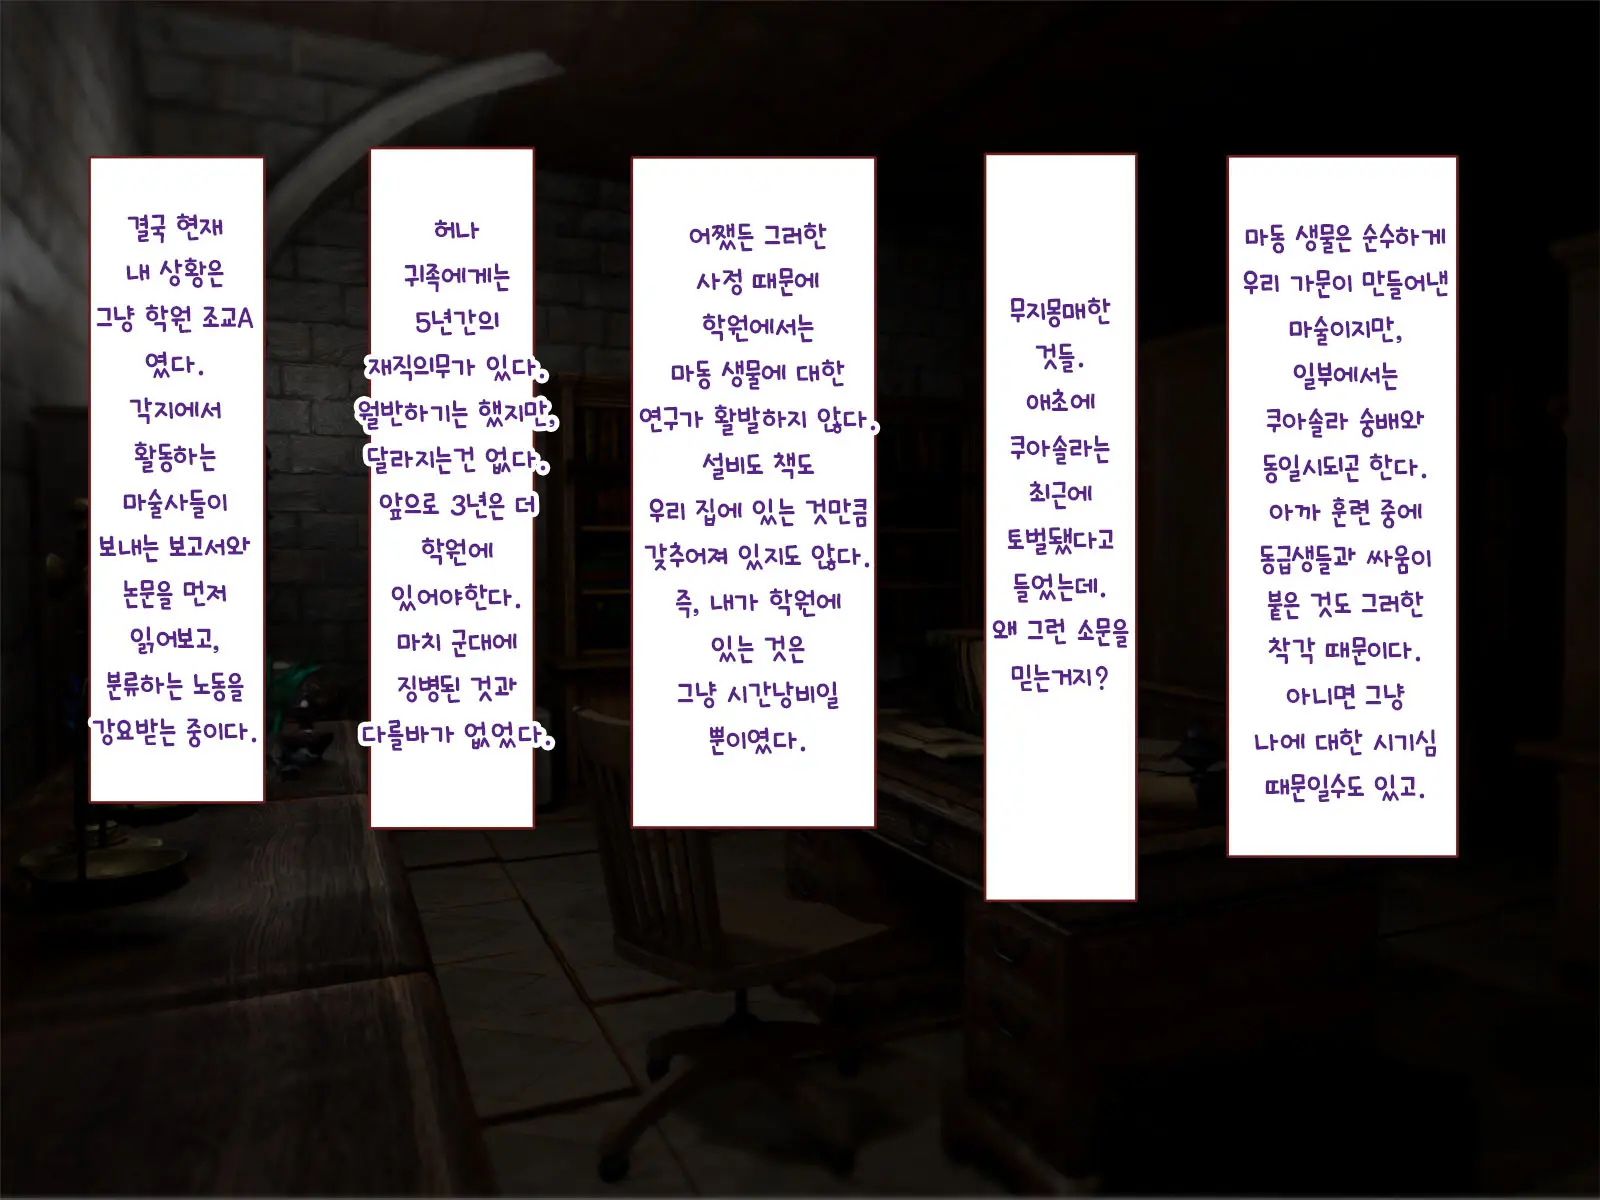 마동 생물은 순수하게
우리 가문이 만들어낸
마술이지만,
일부에서는
쿠아솔라 숭배와
동일시되곤 한다.
아까 훈련 중에
동급생들과 싸움이
붙은 것도 그러한
착각 때문이다.
아니면 그냥
나에 대한 시기심
때문일수도 있고.
무지몽매한
것들.
애초에
쿠아솔라는
최근에
토벌됐다고
들었는데.
왜 그런 소문을
믿는거지?
어쨌든 그러한
사정 때문에
학원에서는
마동 생물에 대한
연구가 활발하지 않다.
설비도 책도
우리 집에 있는 것만큼
갖추어져 있지도 않다.
즉, 내가 학원에
있는 것은
그냥 시간낭비일
뿐이였다.
허나
귀족에게는
5년간의
재직의무가 있다.
월반하기는 했지만,
달라지는건 없다.
앞으로 3년은 더
학원에
있어야한다.
마치 군대에
징병된 것과
다를바가 없었다.
결국 현재
내 상황은
그냥 학원 조교A
였다.
각지에서
활동하는
마술사들이
보내는 보고서와
논문을 먼저
읽어보고,
분류하는 노동을
강요받는 중이다.